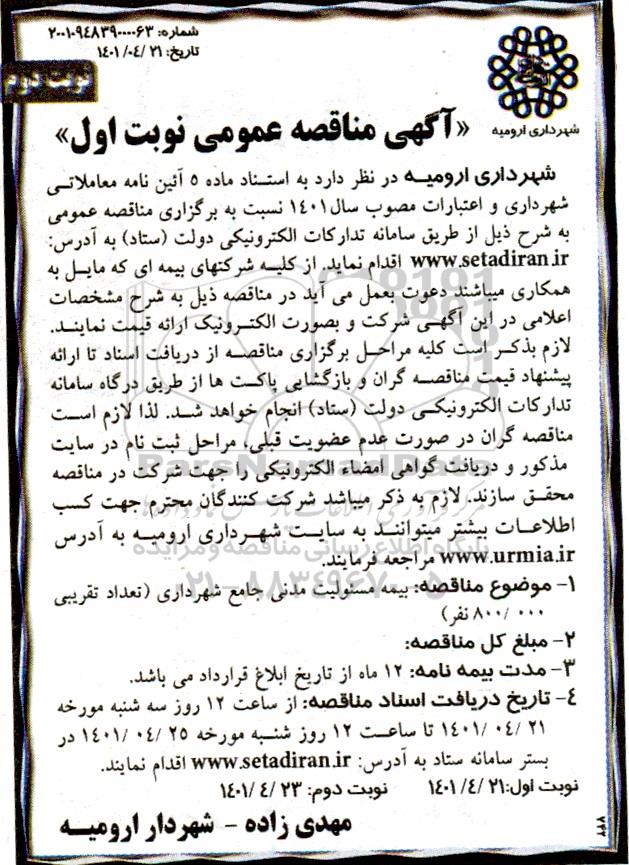 شماره: ۲۰۰۱۰۹۴۸۳۹۰۰۰۰۶۳
تاریخ: ۲۱ /۰۴/ ۱۴۰۱
نوبت دوم
شهرداری ارومیه
«آگهی مناقصه عمومی نوبت اول»
شهرداری ارومیـه در نظر دارد به اسـتناد ماده ۵ آئین نامه معاملاتـی
شهرداری و اعتبارات مصوب سال۱۴۰۱ نسبت به برگزاری مناقصه عمومی
به شرح ذیل از طریق سامانه تدارکات الکترونیکی دولت (ستاد) به آدرس:
www.setadiran.ir اقدام نماید. از کلیـه شرکتهای بیمه ای که مایـل به
همکاری میباشند دعوت بعمل می آید در مناقصه ذیل به شرح مشخصات
اعلامی در این آگهـی شرکت و بصورت الکتـرونیک ارائه قیمت نماینـد.
لازم بذکـر است کلیه مراحـل برگزاری مناقصـه از دریافت اسناد تا ارائه
پیشنهاد قیمت مناقصـه گران و بازگشایی پاکـت ها از طریق درگاه سامانه
تدارکات الکترونیکـی دولت (ستاد) انجام خواهد شـد. لذا لازم اسـت
مناقصه گران در صورت عدم عضویت قبلی، مراحل ثبت نام در سایت
مذکور و دریافت گواهی امضاء الکترونیکی را جهت شرکت در مناقصه
محقـق سازند. لازم به ذکر میباشد شرکت کنندگان محترم جهت کسب
اطلاعـات بیشتر میتواننـد به سایـت شهـرداری ارومیـه به آدرس
www.urmia.ir مراجعه فرمایند.
۱- موضوع مناقصه: بیمه مسئولیت مدنی جامع شهرداری (تعداد تقریبی
۸۰۰/۰۰۰ نفر)
۲- مبلغ کل مناقصه:
۳- مدت بیمه نامه: ۱۲ ماه از تاریخ ابلاغ قرارداد می باشد.
۴- تاریخ دریافت اسناد مناقصه: از ساعت ۱۲ روز سه شنبه مورخه
۲۱ /۰۴ /۱۴۰۱ تا ساعـت ۱۲ روز شنـبه مورخه ۲۵ /۰۴ /۱۴۰۱ در
بستر سامانه ستاد به آدرس: www.setadiran.ir اقدام نمایند.
نوبت اول:۲۱ /۴ /۱۴۰۱ نوبت دوم: ۲۳ /۴ /۱۴۰۱
۷۲۲
مهدی زاده - شهردار ارومیـه
ParsNamadData
پایگاه اطلاع رسانی مناقصه و مزایده
۰۲۱-۸۸۳۴۹۶۷۰